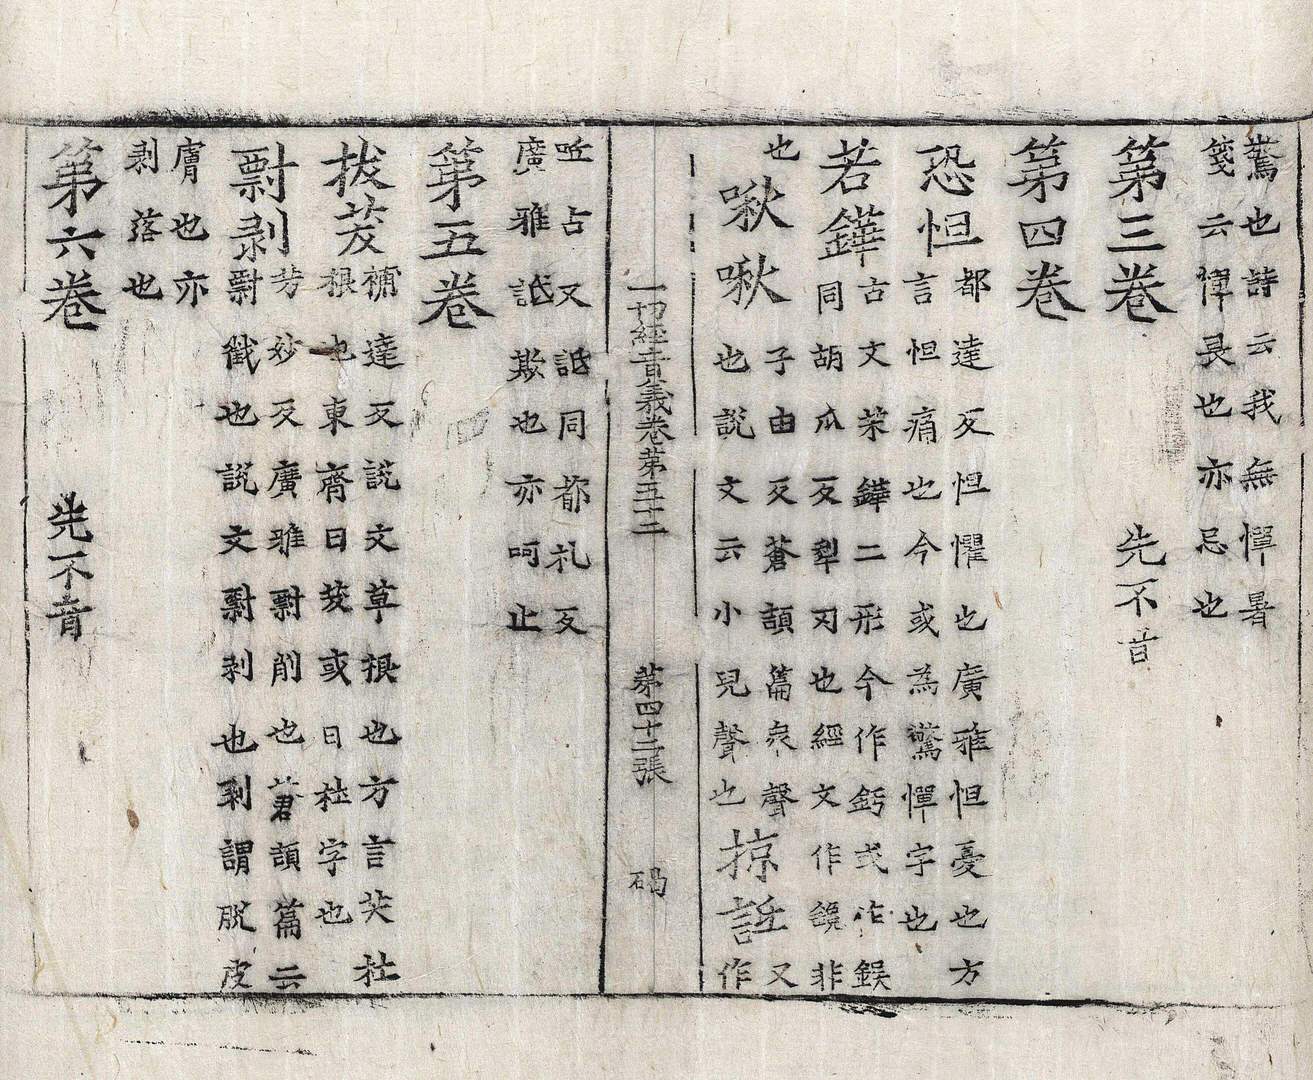 驚也詩云我無憚暑
箋云憚畏也亦忌也
第三卷　先不音
第四卷
恐怛
都達反怛懼也廣雅怛憂也方
言怛痛也今或為驚憚字也
若鏵
古文茉鏵二形今作釫或作鋘
同胡瓜反犁刃也經文作鎞非
也
啾啾
子由反蒼頡篇衆聲
也說文云小兒聲也
掠詆
又
作
一切經音義卷第五十二　第四十二張　碣
呧占又詆同都礼反
廣雅詆欺也亦呵止
第五卷
拔茇
補達反說文草根也方言茇杜
根也東齊曰茇或曰杜字也
剽剥
芳妙反廣雅剽削也蒼頡篇云
剽截也說文剽剥也剥謂脫皮
膚也亦
剥落也
第六卷　先不音